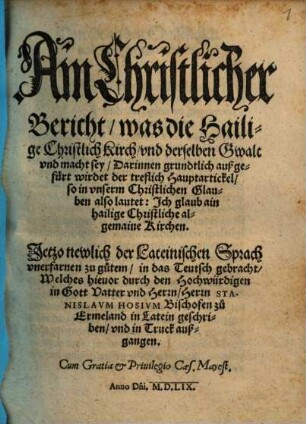 1
Ain Christlicher
Bericht / was die Haili-
ge Christlich Kirch / vnd derselben Gwalt
vnd macht sey / Darinnen grundtlich außge-
fürt wirdet der treflich Hauptartickel /
so in vnserm Christlichen Glau-
ben also lautet: Ich glaub ain
hailige Christliche al-
gemaine Kirchen.
Jetzo newlich der Lateinischen Sprach
vnerfarnen zu gůtem / in das Teutsch gebracht /
Welches hieuor durch den Hochwürdigen
in Gott Vatter vnd Herrn / Herrn STA-
NISLAVM HOSIVM Bischofen zů
Ermeland in Latein geschri-
ben / vnd in Truck auß-
gangen.
Cum Gratia & Priuilegio Cæs. Mayest.
Anno Dñi. M.D.LIX.